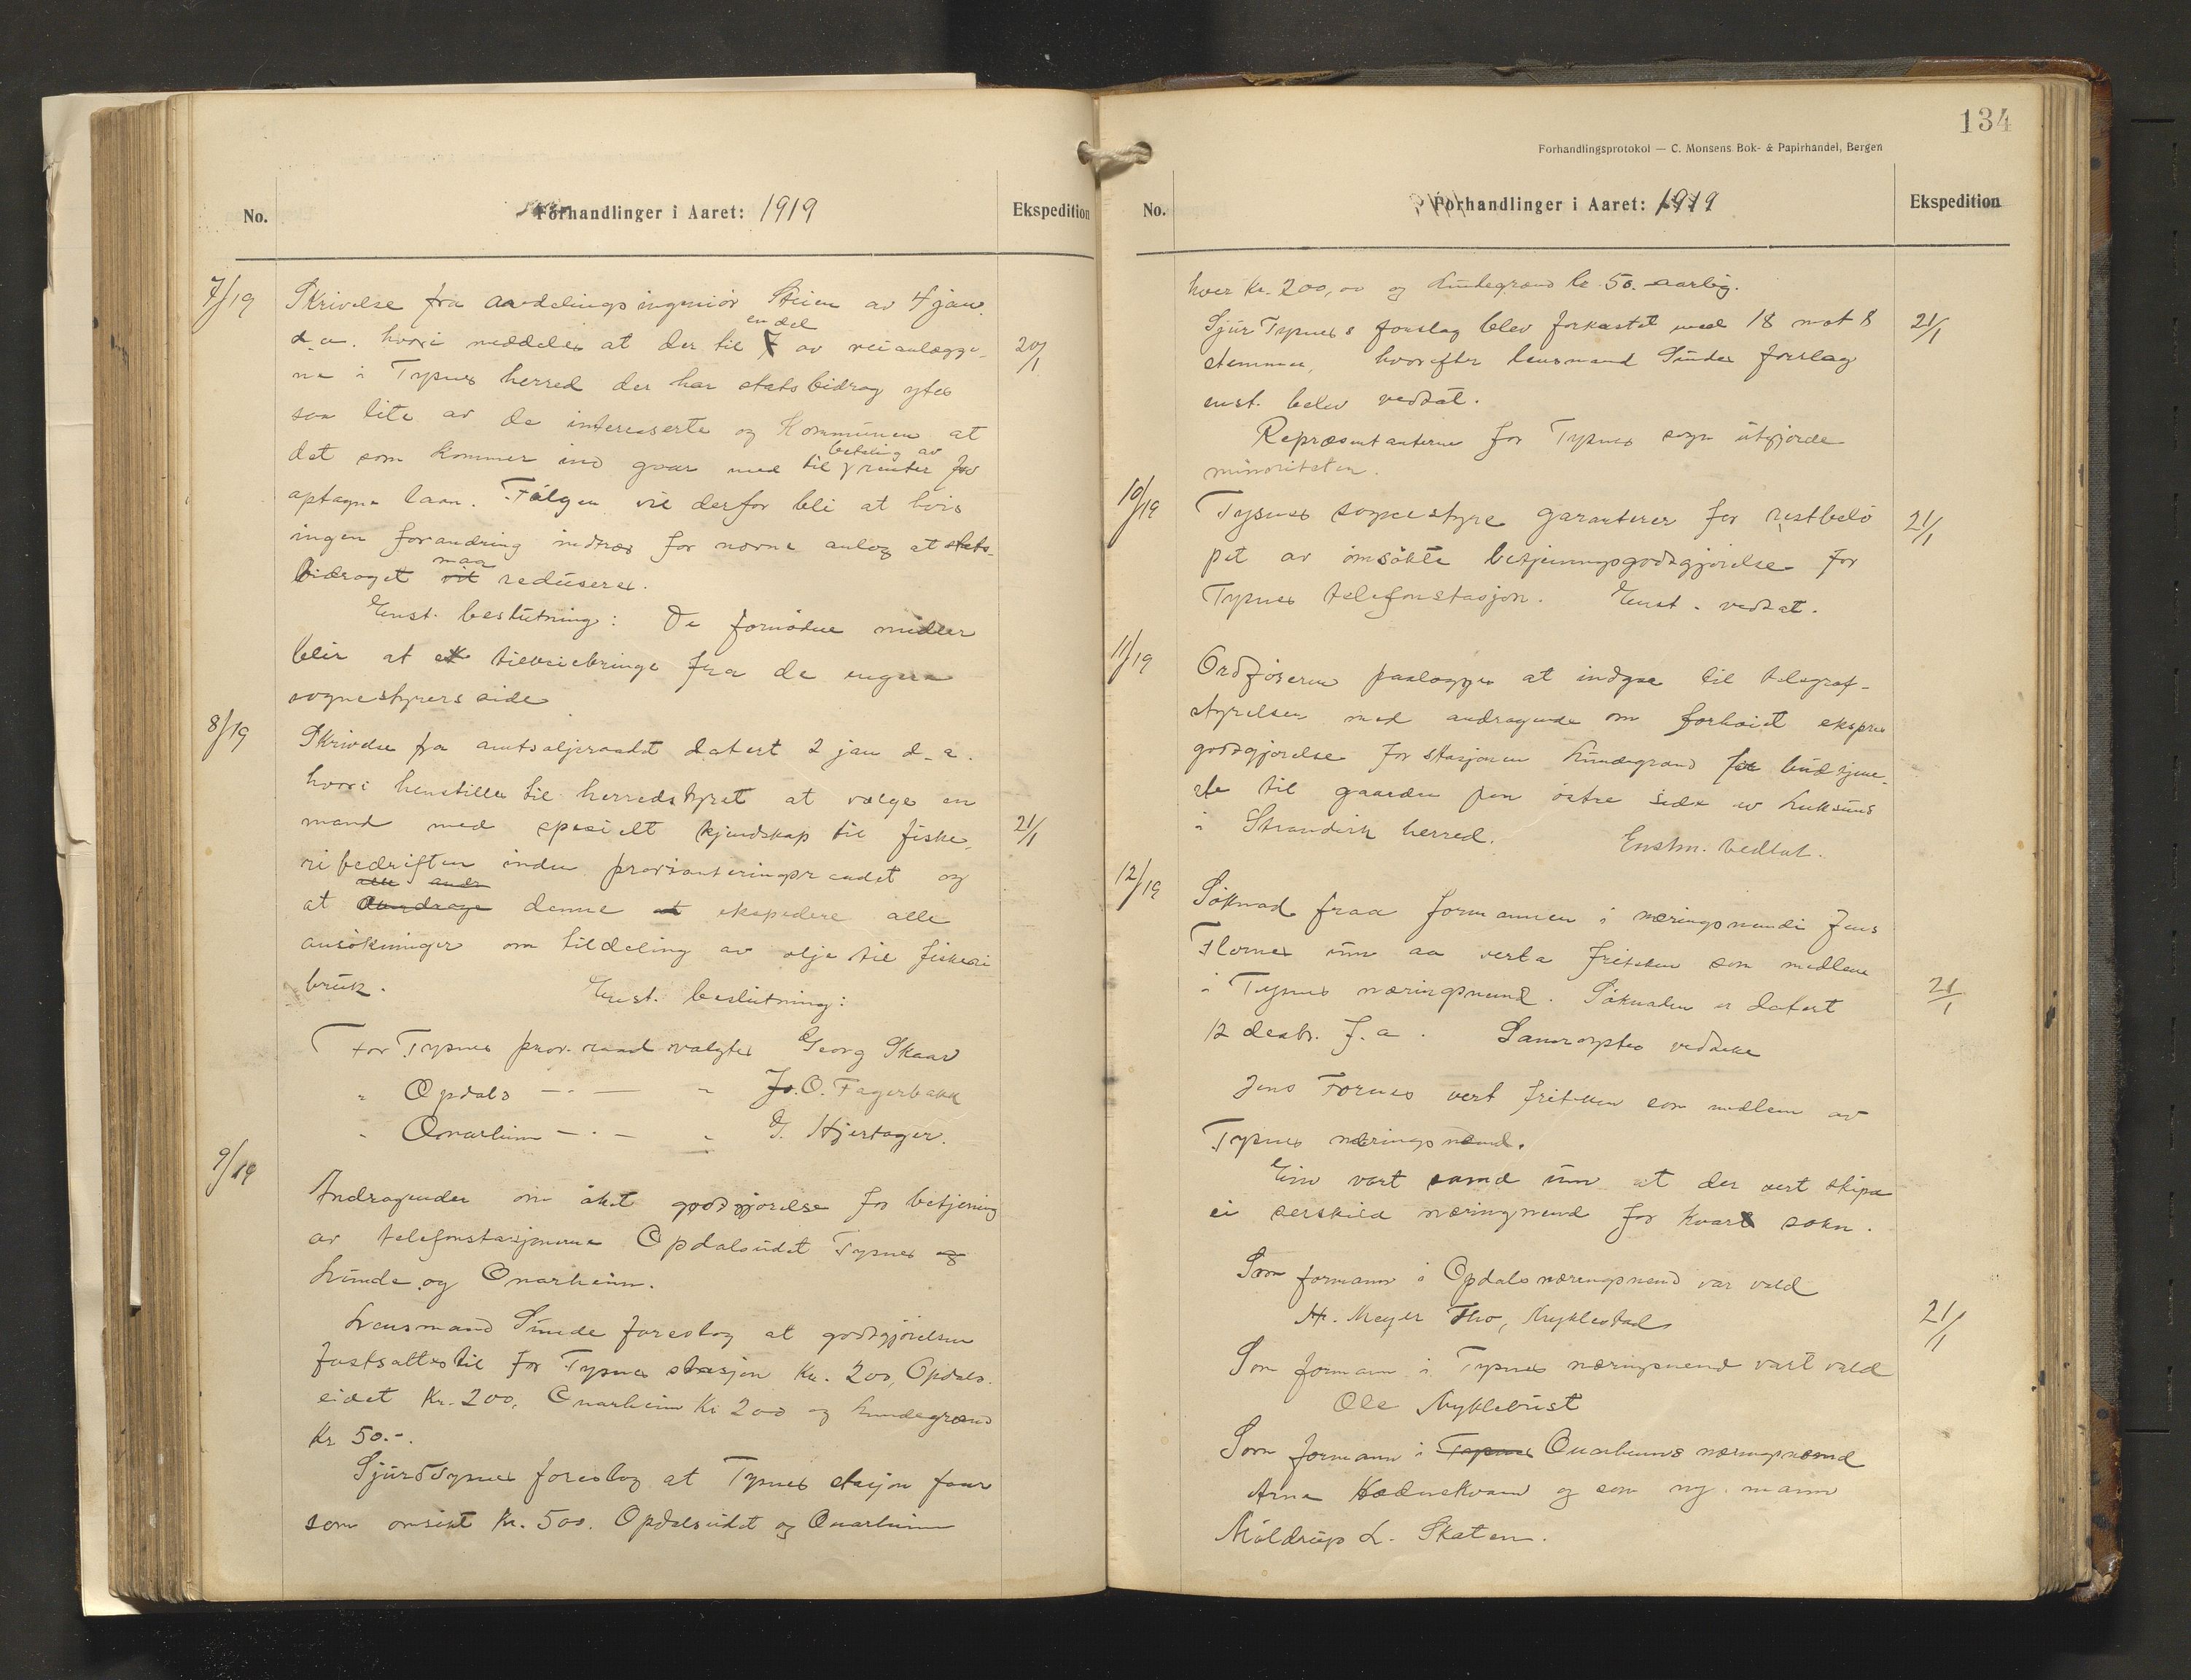 No.
Forhandlinger i Aaret: 1919
Ekspedition
7/19
Skrivelse fra avdelingsingeniør Steien av 4 jan.
d.a. hvori meddeles at der til en del av veianlægge-
20/1
ne i Tysnes herred der har statsbidrag ytes
saa lite av de interesserte og Kommunen at
det som kommer ind gaar med til betaling av renter for
optagne laan. Følgen vil derfor bli at hvis
ingen forandring indtræs for nævne anlæg at stats-
bidraget vil maa reduseres.
Enst. beslutning: De fornødne midler
blir at tilveiebringe fra de engere
sognestyrers side
8/19
Skrivelse fra amtsoljeraadet datert 2 jan d.a.
hvori henstilles til herredstyret at vælge en
mand med spesielt kjendskap til fiske-
21/1
ribedriften inden provianteringsraadet og
at denne at ekspedere alle
ansøkninger om tildeling av olje til fiskeri
bruk. Enst. beslutning:
For Tysnes prov. raad valgtes Georg Skaar
" Opdals — . — " Jo. O. Fagerbakk
" Onarheim — . — " G. Hjertager.
9/19
Andragender om øket godtgjørelse for betjening
av telefonstasjonerne Opdalseidet Tysnes og
Lunde og Onarheim.
Lensmand Sunde foreslog at godtgjørelsen
fastsattes til for Tysnes stasjon Kr. 200, Opdals-
eidet Kr. 200, Onarheim Kr 200 og Lundegrend
Kr 50.-.
Sjur Tysnes foreslog at Tysnes stasjon faar
som ansøkt Kr. 500. Opdalseidet og Onarheim
134
Forhandlingsprotokol — C. Monsens Bok- & Papirhandel, Bergen
No.
Forhandlinger i Aaret: 1919
Ekspedition
hver Kr. 200,00 og Lundegrend kr. 50. aarlig.
Sjur Tysnes's forslag blev forkastet med 18 mot 8
21/1
stemmer, hvorefter lensmand Sundes forslag
enst. belev vedtat.
Repræsentanterne for Tysnes sogn utgjorde
minoriteten.
10/19
Tysnes sognestyre garanterer for restbelø
21/1
pet av omsøkte betjeningsgodtgjørelse for
Tysnes telefonstasjon. Enst. vedtat.
11/19
Ordføreren paalægges at indgaa til telegraf-
styrelsen med andragende om forhøiet ekspres
godtgjørelse for stasjonen Lundegrend for budtjene-
ste til gaarden paa østre side av Luksund
i Strandvik herred. Enstm. vedtat.
12/19
Søknad fraa formannen i næringsnemdi Jens
Flornes um aa verta friteken som medlem
i Tysnes næringsnemd. Søknaden er datert
21/1
12 desbr. f.a. Samrøystes vedteke
Jens Fornes vert friteken som medlem av
Tysnes næringsnemd.
Ein vart samd um at der vert skipa
ei serskild næringsnemd for kvart sokn.
Som formann i Opdals næringsnemd var vald
H. Meyer Tho, Myklestad
21/1
Som formann i Tysnes næringsnemd vart vald
Ole Myklebust
Som formann i Tysnes Onarheims næringsnemd
Arne Hædnekvam og som ny mann
Møldrup L. Skaten.